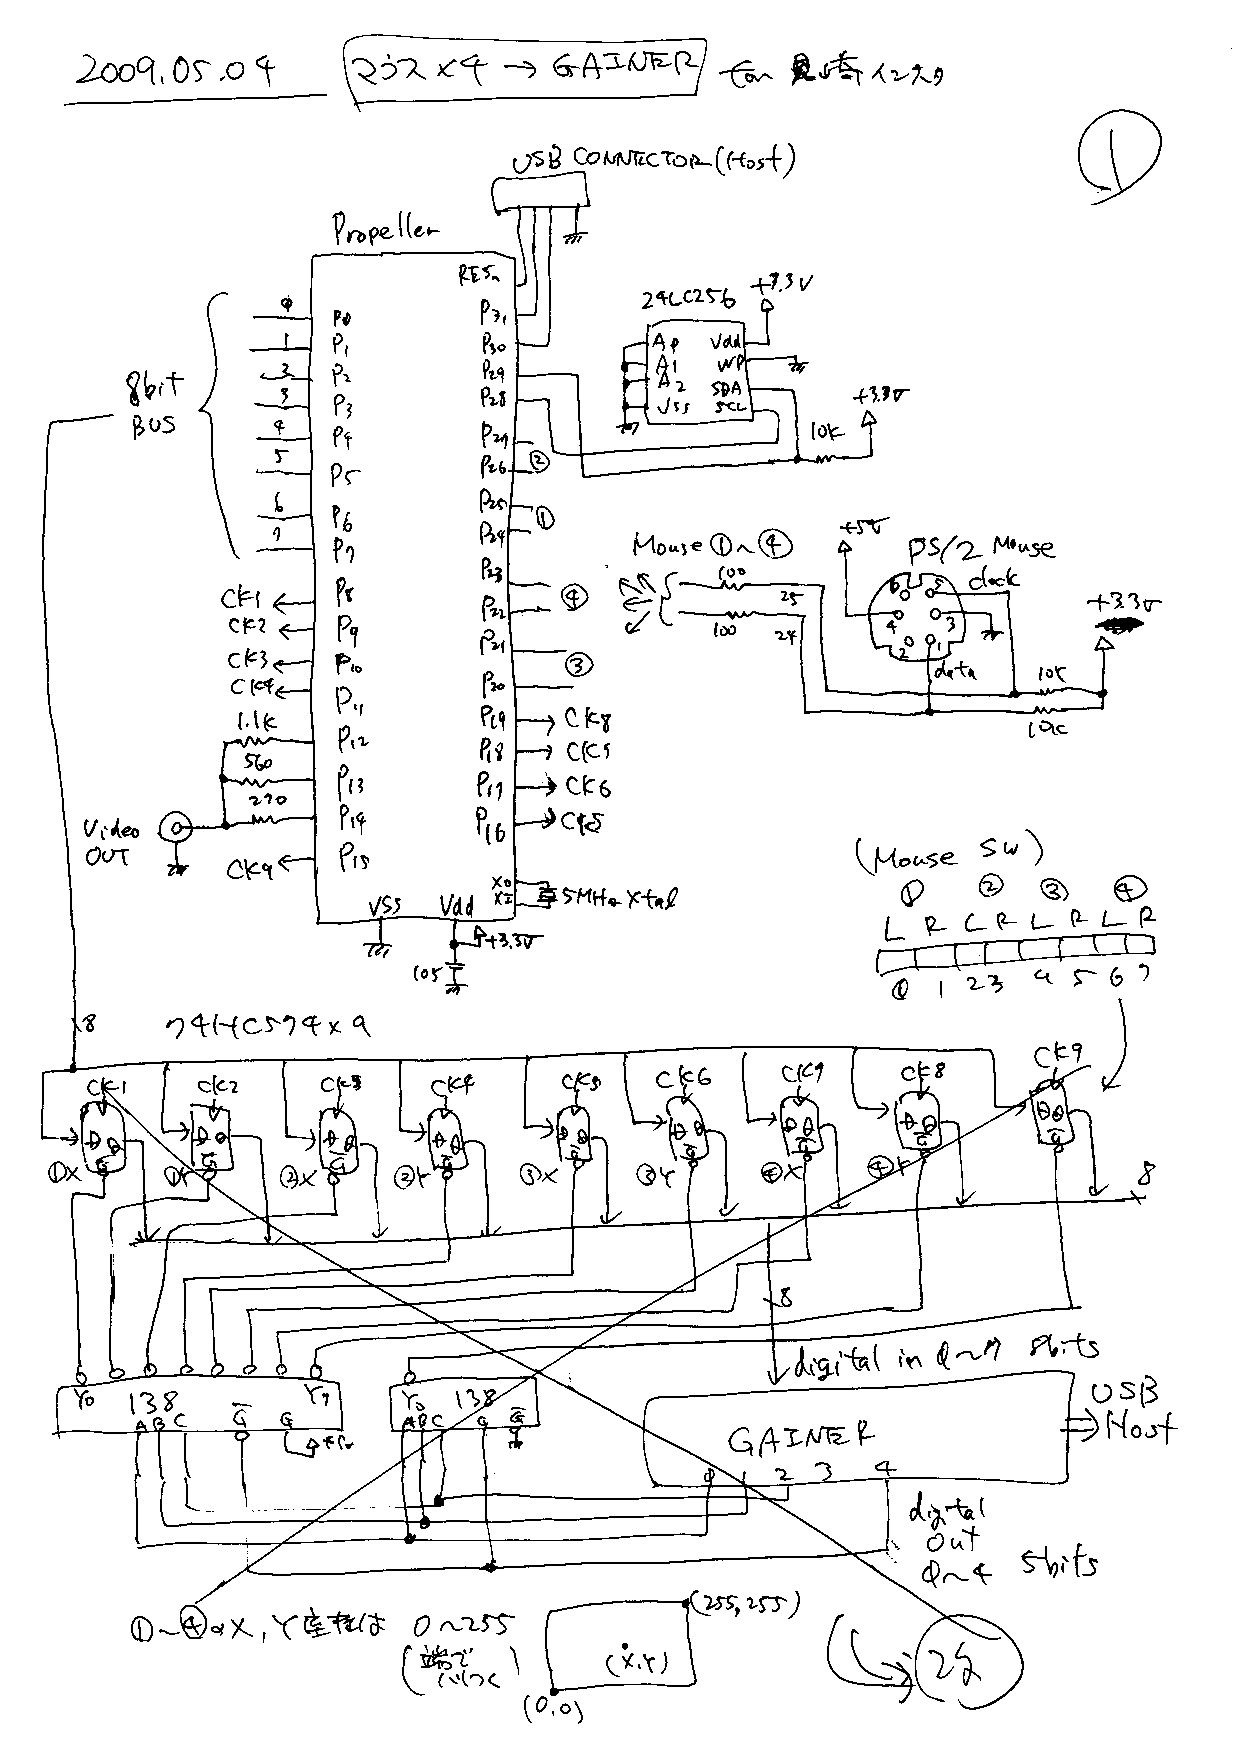 2009.05.04
マウス×4 → GAINER
for
インスタ
①
USB CONNECTOR (Host)
Propeller
RESn
8bit
BUS
0 P0
1 P1
2 P2
3 P3
4 P4
5 P5
6 P6
7 P7
CK1 P8
CK2 P9
CK3 P10
CK4 P11
1.1K P12
560 P13
270 P14
Video
OUT
CK9 P15
P31
P30
P29
P28
P27
P26 ②
P25
P24 ①
P23
P22 ④
P21
P20 ③
P19 CK8
P18 CK7
P17 CK6
P16 CK5
X0
XI
5MHz Xtal
VSS Vdd
+3.3V
105
24LC256
+3.3V
A0 Vdd
A1 WP
A2 SDA
VSS SCL
+3.3V
10K
Mouse ①~④
100
100
25
24
+5V
PS/2 Mouse
clock
6 5
4 3
2 1
data
+3.3V
10K
10K
(Mouse SW)
① ② ③ ④
L R L R L R L R
0 1 2 3 4 5 6 7
8
74HC574×9
CK1 CK2 CK3 CK4 CK5 CK6 CK7 CK8 CK9
D Q D Q D Q D Q D Q D Q D Q D Q D Q
G G G G G G G G G
①X ①Y ②X ②Y ③X ③Y ④X ④Y
8
8
digital in 0~7 8bits
Y0 138 Y7
A B C G G
Y0 138
A B C G G
GAINER
0 1 2 3 4
USB
Host
digital
out
0~4 5bits
①~④のX,Y座標は 0~255
(端で
(255,255)
(X,Y)
(0,0)